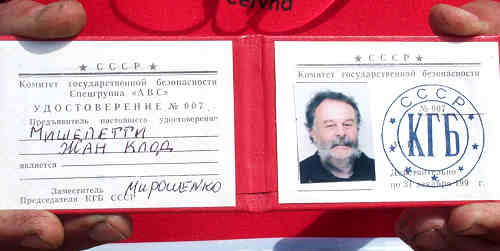 Cervna
★ СССР ★
Комитет государственной безопасности
Спецгруппа «АВС»
УДОСТОВЕРЕНИЕ № 007
Предъявитель настоящего удостоверения
МИШЕЛЕТТИ
ЖАН КЛОД
является
Заместитель
Председателя КГБ СССР
Мирошенко
★ СССР ★
Комитет государственной безопасности
№ 007
СССР
КГБ
Действительно
по 31 декабря 199 г.